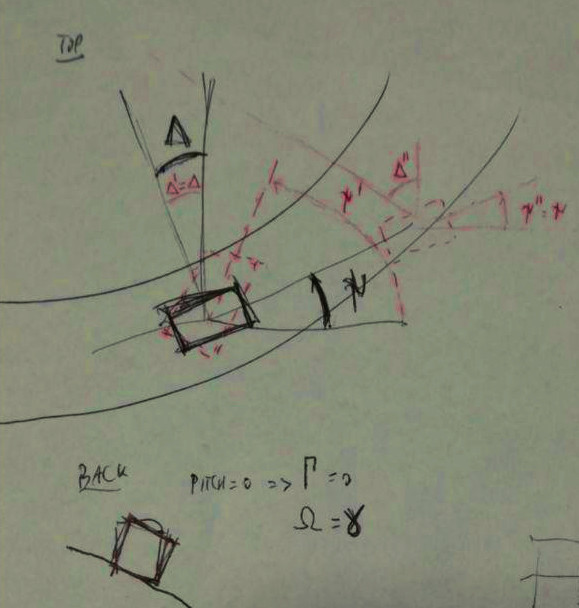 TOP
Δ
Δ'=Δ
Δ"
ψ'
ψ"=ψ
ψ
BACK
PITCH=0 => Γ=0
Ω=γ